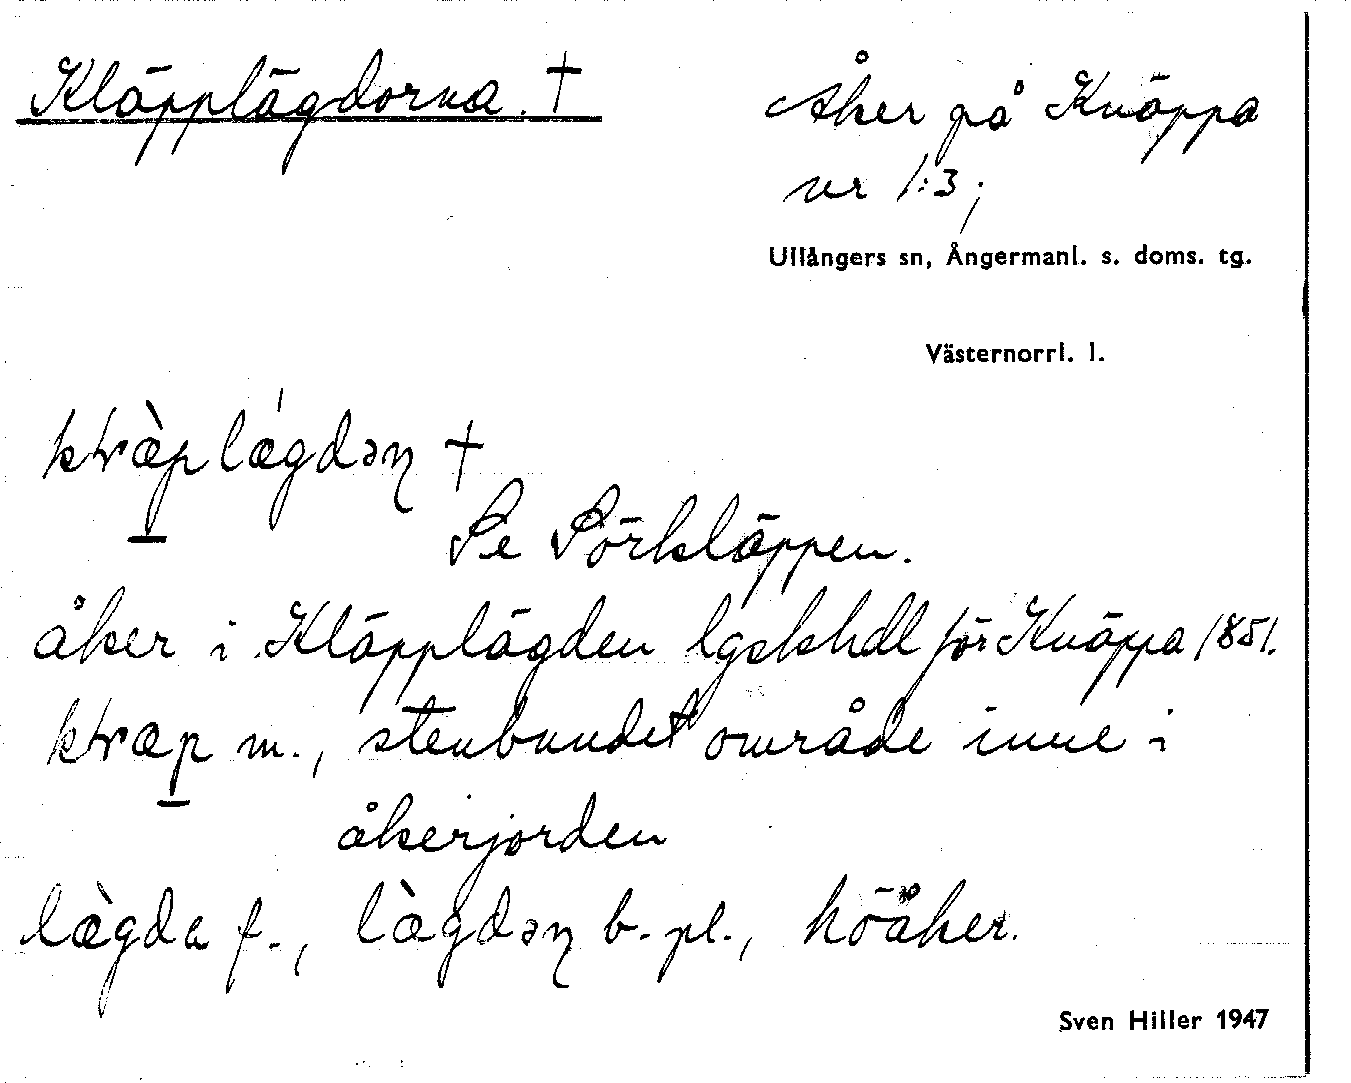 Kläpplägdorna. †
Åker på Knäppa
nr 1:3;
Ullångers sn, Ångermanl. s. doms. tg.
Västernorrl. l.
†
Se Sörkläppen.
åker i Kläpplägden lgskhdl för Knäppa 1851.
m., stenbundet område inne i
åkerjorden
lægda f., lægdəɳ b. pl., höåker.
Sven Hiller 1947